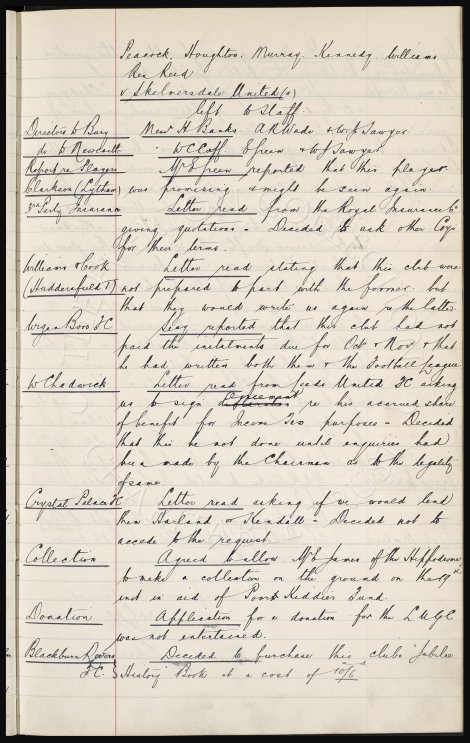 Peacock. Houghton. Murray. Kennedy. Williams
Rev Reed
v Skelmersdale United (a)
left to Staff
Directors to Bury Messrs H Banks A R Wade & W J Sawyer.
do to Newcastle " W C Cuff. E Green & W J Sawyer
Report re Players Mr E Green reported that this player
Clarkson (Lytham) was promising & might be seen again.
3rd Party Insurance Letter read from the Royal Insurance Co
giving quotations - Decided to ask other Coys
for their terms.
Williams & Cook Letter read stating that this club were
(Huddersfield T) not prepared to part with the former but
that they would write us again re the latter.
Wigan Boro FC Secy reported that this club had not
paid the instalments due for Oct & Nov & that
he had written both them & the Football League
W Chadwick Letter read from Leeds United FC asking
us to sign agreement re his accrued share
of benefit for Income Tax purposes - Decided
that this be not done until enquiries had
been made by the Chairman as to the legality
of same.
Crystal Palace FC Letter read asking if we would lend
them Harland or Kendall - Decided not to
accede to the request.
Collection Agreed to allow Mr E James of the Hippodrome
to make a collection on the ground on the
inst in aid of Poor Kiddies Fund
Donation Application for a donation for the L U G C
was not entertained.
Blackburn Rovers Decided to purchase this clubs Jubilee
FC. } History Book at a cost of 10/6